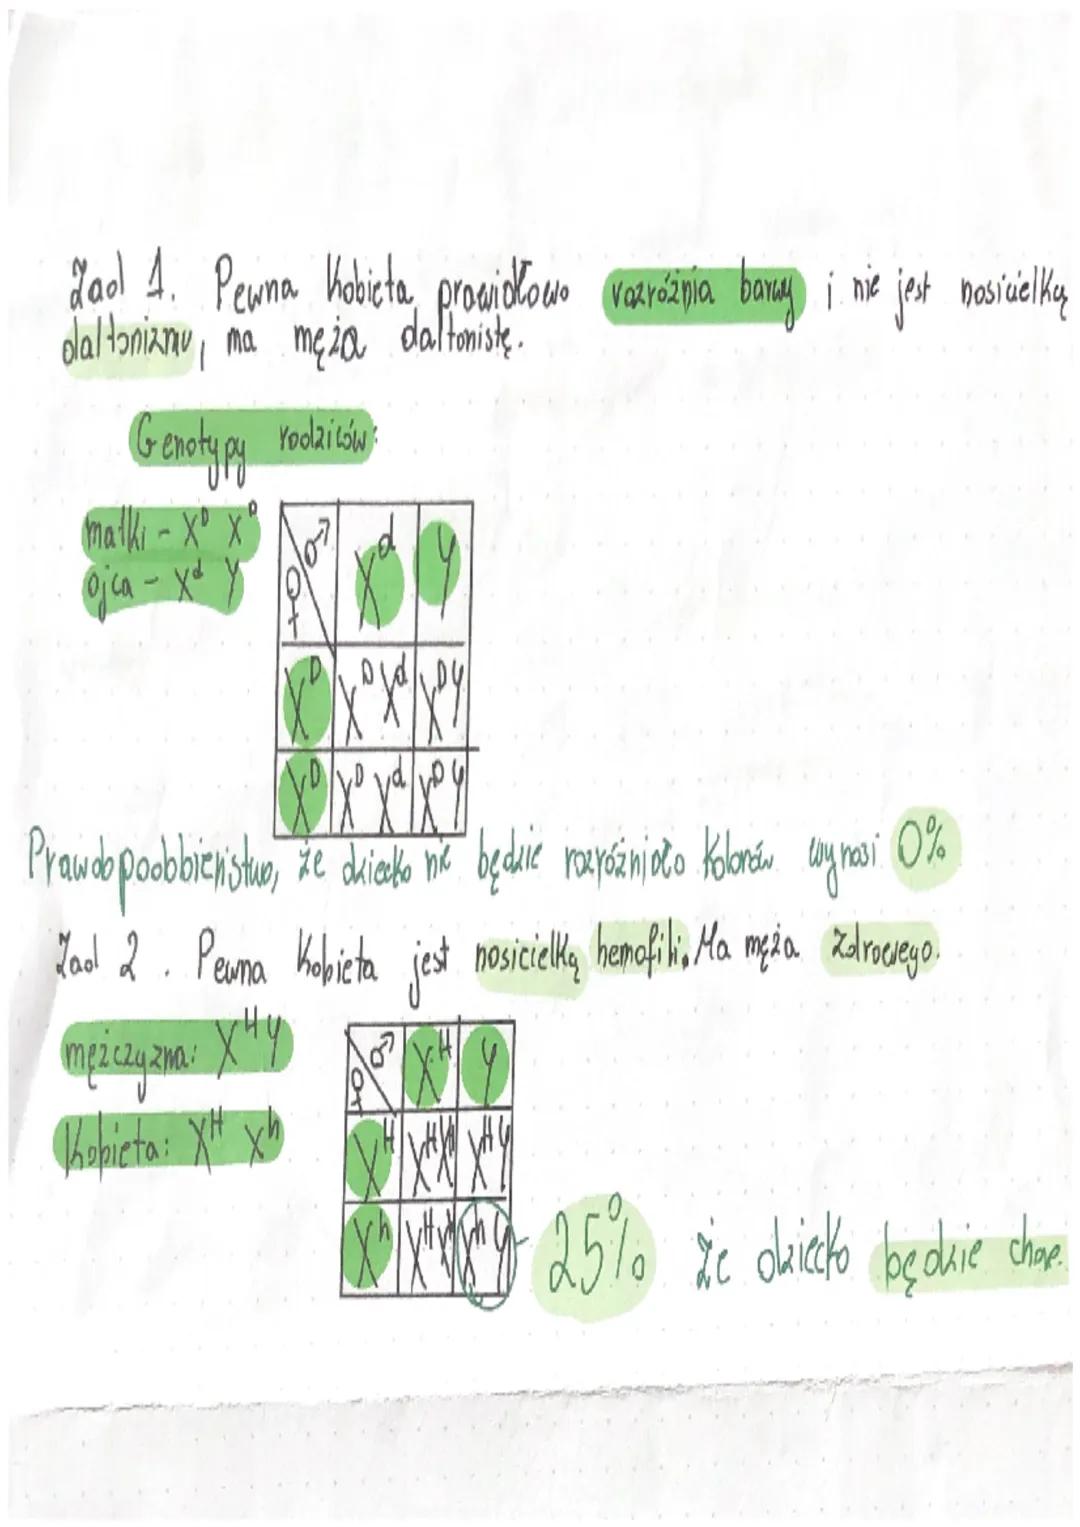 Zad 1. Pewna kobieta prawidłowo rozróżnia barwy i nie jest nosicielką
daltonizmu, ma męża daltonistę.
Genotypy rodziców:
matki - X^D X^D
ojca - X^d Y
♀ ♂ X^d Y
X^D X^D X^d X^D Y
X^D X^D X^d X^D Y
Prawdopodobbieństwo, że dziecko nie będzie rozróżniało kolorów wynosi 0%
Zad 2. Pewna kobieta jest nosicielką hemofilii. Ma męża zdrowego.
mężczyzna: X^H Y
Kobieta: X^H X^h
♀ ♂ X^H Y
X^H X^H X^H X^H Y
X^h X^H X^h X^h Y - 25% że dziecko będzie chore.